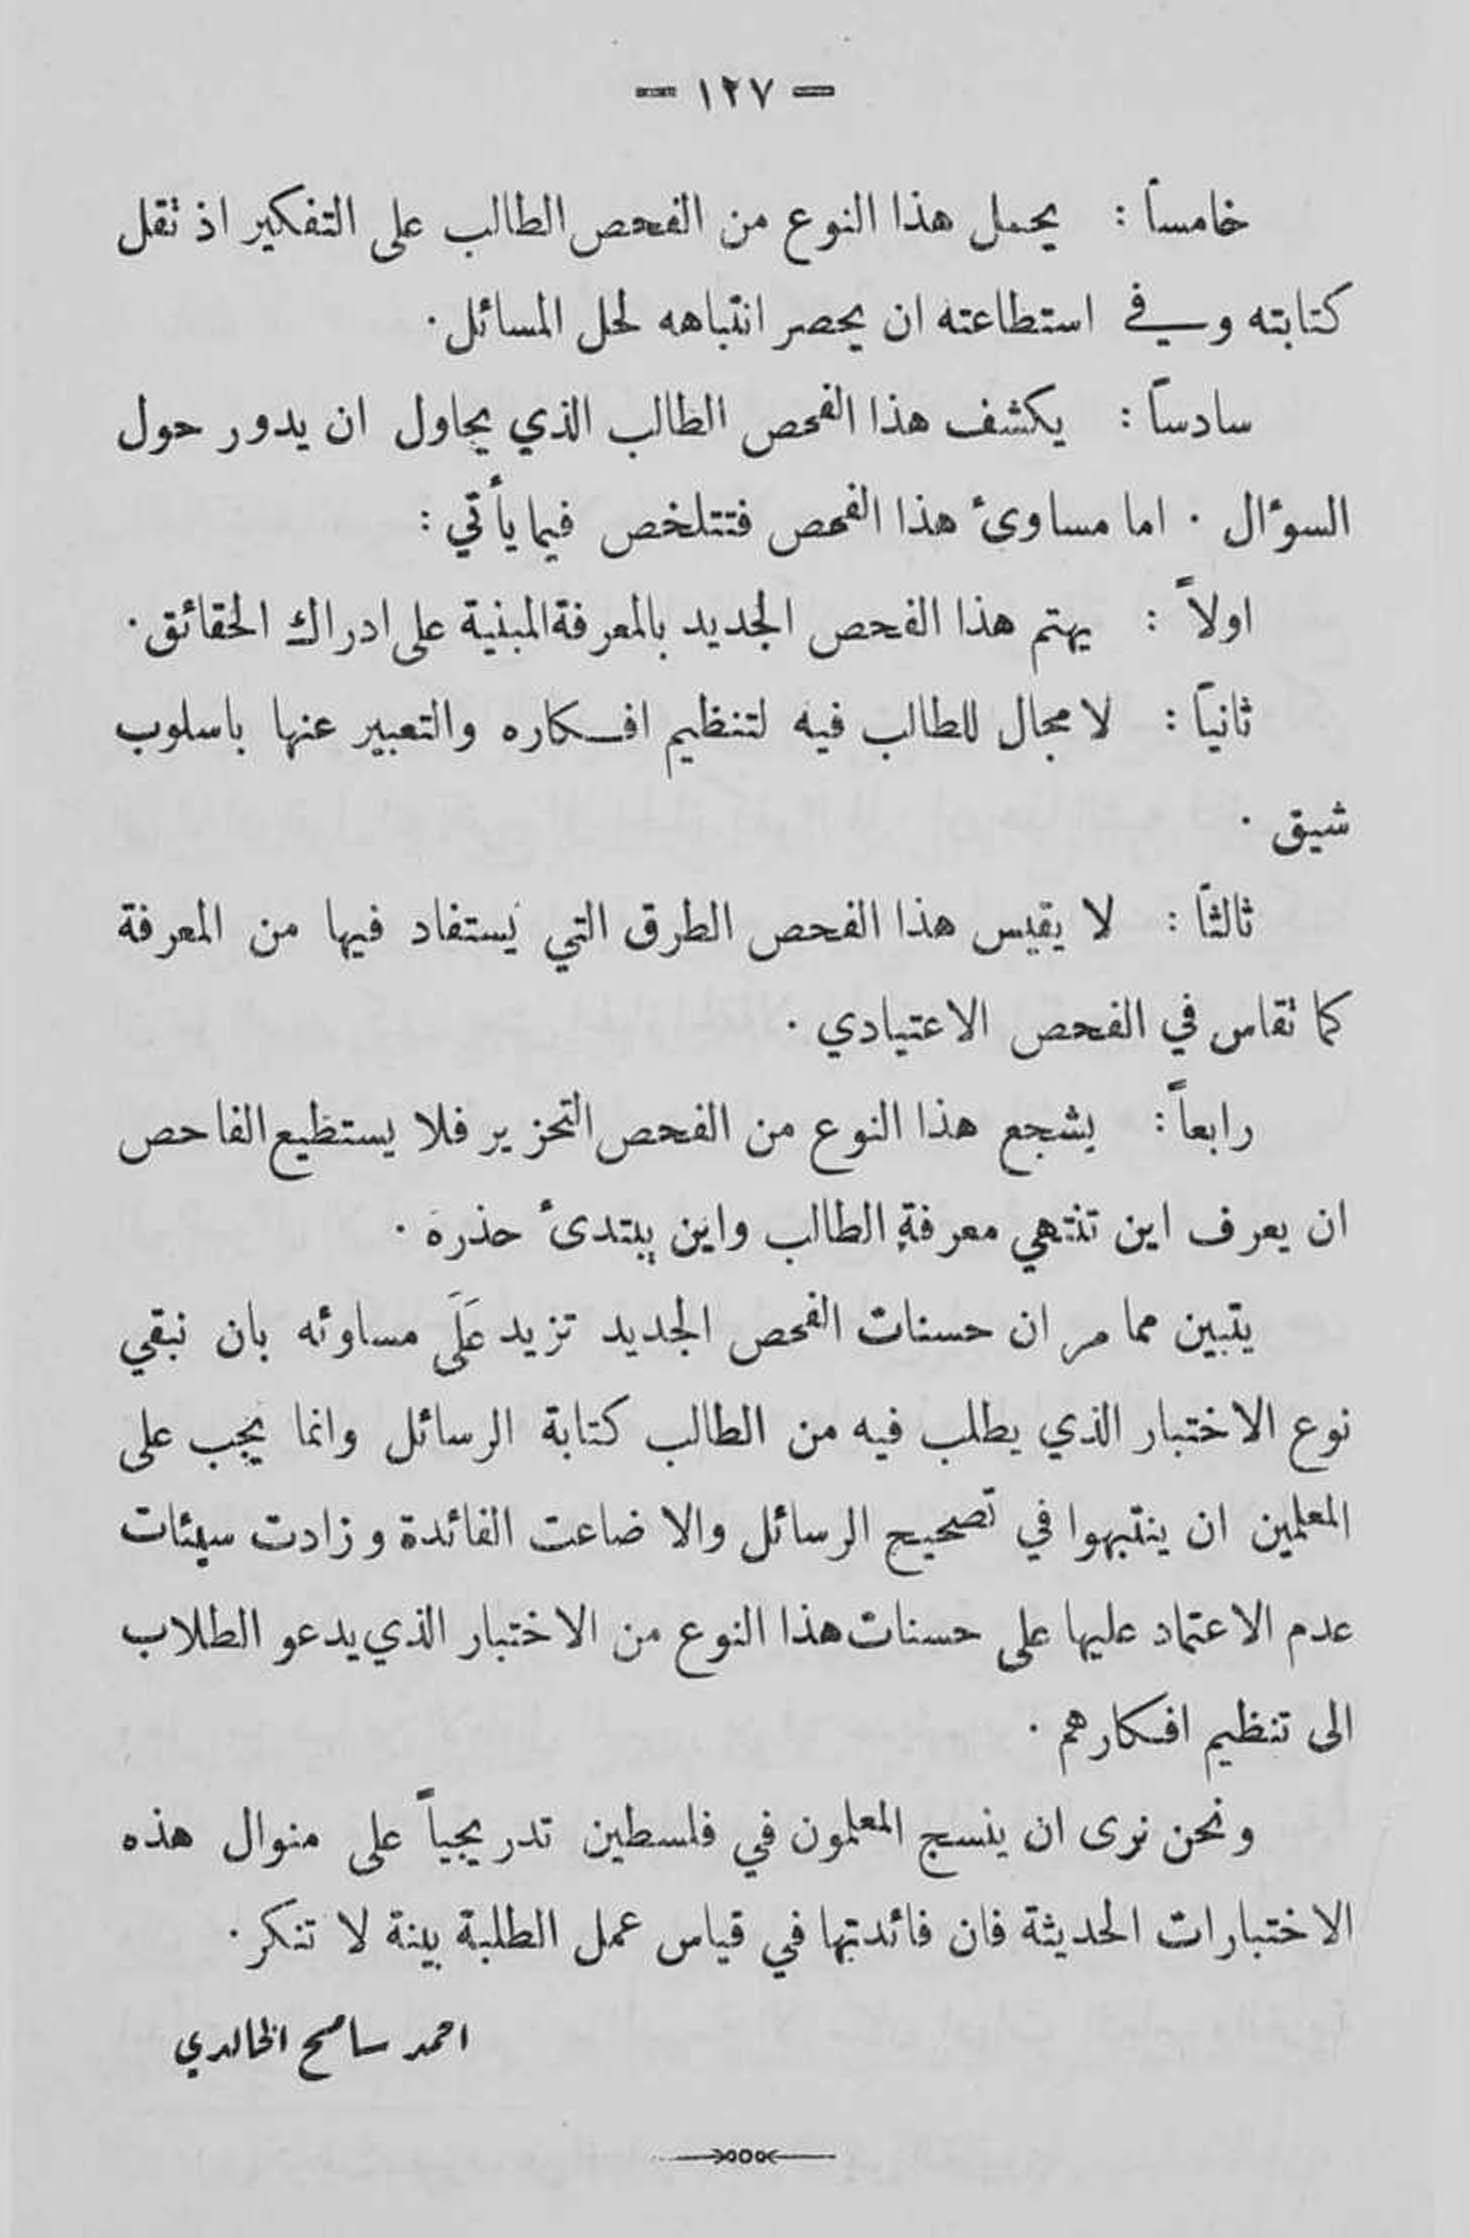 — ١٢٧ —
خامساً : يحمل هذا النوع من الفحص الطالب على التفكير اذ تقل
كتابته وفي استطاعته ان يحصر انتباهه لحل المسائل .
سادساً : يكشف هذا الفحص الطالب الذي يحاول ان يدور حول
السوءال . اما مساوىء هذا الفحص فتتلخص فيما يأتي :
اولاً : يهتم هذا الفحص الجديد بالمعرفة المبنية على ادراك الحقائق .
ثانياً : لا مجال للطالب فيه لتنظيم افكاره والتعبير عنها باسلوب
شيق .
ثالثاً : لا يقيس هذا الفحص الطرق التي يُستفاد فيها من المعرفة
كما تقاس في الفحص الاعتيادي .
رابعاً : يشجع هذا النوع من الفحص التحزير فلا يستطيع الفاحص
ان يعرف اين تنتهي معرفة الطالب واين يبتدىء حذره .
يتبين مما مر ان حسنات الفحص الجديد تزيد عَلَى مساوئه بان نبقي
نوع الاختبار الذي يطلب فيه من الطالب كتابة الرسائل وانما يجب على
المعلمين ان ينتبهوا في تصحيح الرسائل والا ضاعت الفائدة وزادت سيئات
عدم الاعتماد عليها على حسنات هذا النوع من الاختبار الذي يدعو الطلاب
الى تنظيم افكارهم .
ونحن نرى ان ينسج المعلمون في فلسطين تدريجياً على منوال هذه
الاختبارات الحديثة فان فائدتها في قياس عمل الطلبة بينة لا تنكر .
احمد سامح الخالدي